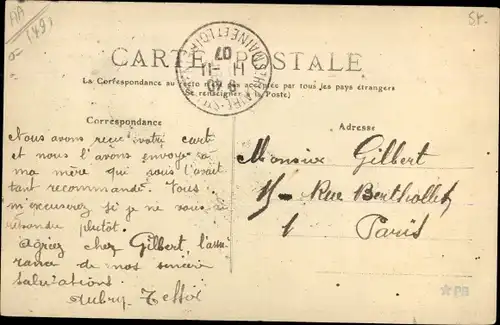 AA
1491
CARTE POSTALE
La Correspondance au recto n'est pas acceptée par tous les pays étrangers
(Se renseigner à la Poste)
Correspondance
Nous avons reçu votre carte
et nous l'avons envoyé à
ma mère qui nous l'avait
tant recommandé. Vous
m'excuserez si je ne vous ai
répondu plutôt.
Agréez cher Gilbert, l'assu
rance de mos sincère
salutations.
Aubry
Adresse
Monsieur Gilbert
15 - Rue Berthollet
Paris
ET LOIRE
11 - 11
07
*PB